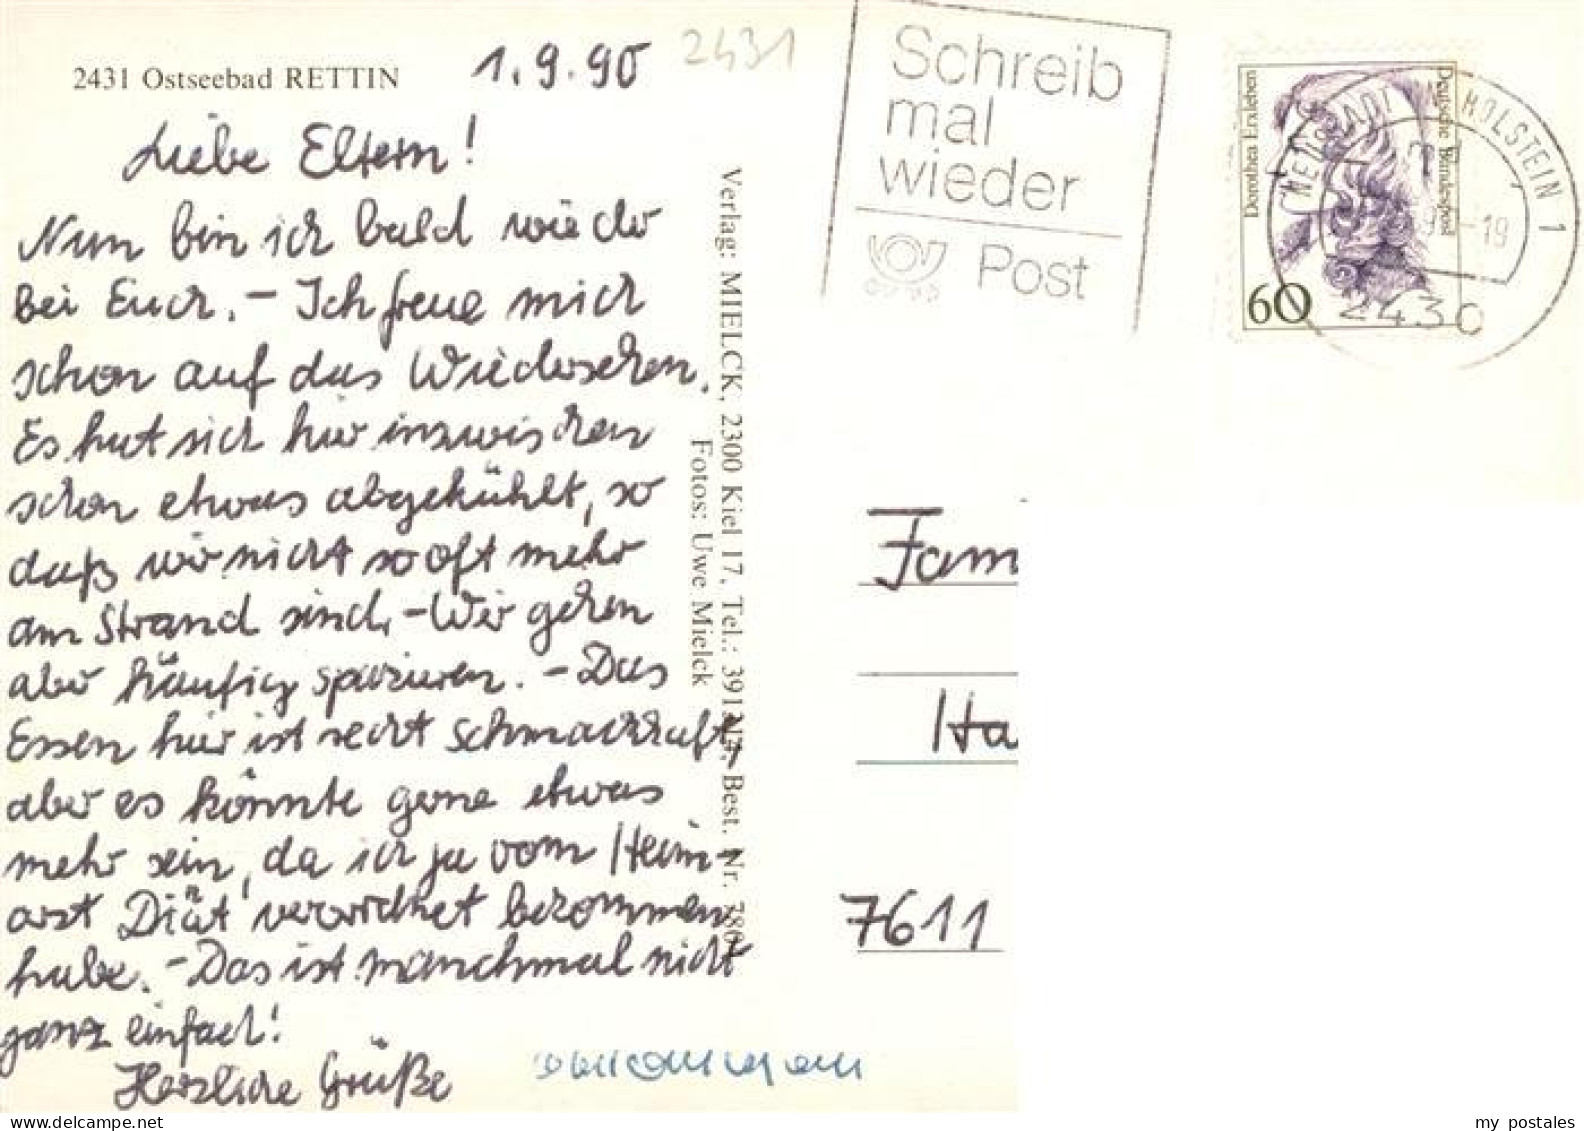 2431 Ostseebad RETTIN
1.9.90
2431
Liebe Eltern!
Nun bin ich bald wieder
bei Euch. - Ich freue mich
schon auf das Wiedersehen.
Es hat sich hier inzwischen
schon etwas abgekühlt, so
daß wir nicht so oft mehr
am Strand sind. - Wir gehen
aber häufig spazieren. - Das
Essen hier ist recht schmackhaft,
aber es könnte gerne etwas
mehr sein, da ich ja vom Heim-
arzt Diät verordnet bekommen
habe. - Das ist manchmal nicht
ganz einfach!
Herzliche Grüße
Verlag: MIELCK, 2300 Kiel 17, Tel.: Best. Nr.
Fotos: Uwe Mielck
Schreib
mal
wieder
Post
Dorothea Erxleben
Deutsche Bundespost
60
HOLSTEIN 1
-19
2430
Fam
Ha
7611
my postales